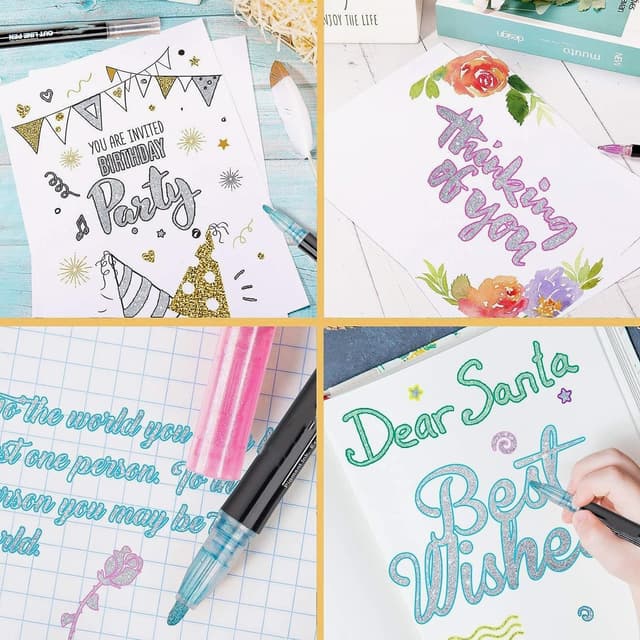 OUT LINE PEN
YOU ARE INVITED
BIRTHDAY
Party
ENJOY THE LIFE
muuto
design
NEW
thinking
of you
To the world you
st one person. To
erson you may be
rld.
Dear Santa
Best
Wishe